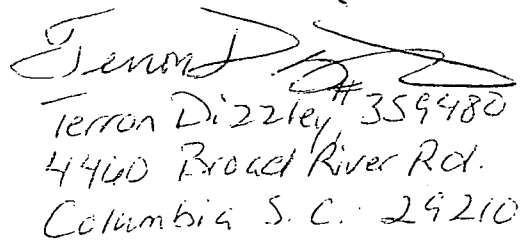 Terron D
Terron Dizzley #359480
4460 Broad River Rd.
Columbia S. C. 29210